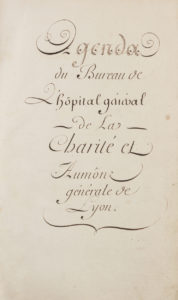 Agenda
du Bureau de
L'hôpital général
de La
Charité et
Aumône
générale de
Lyon.